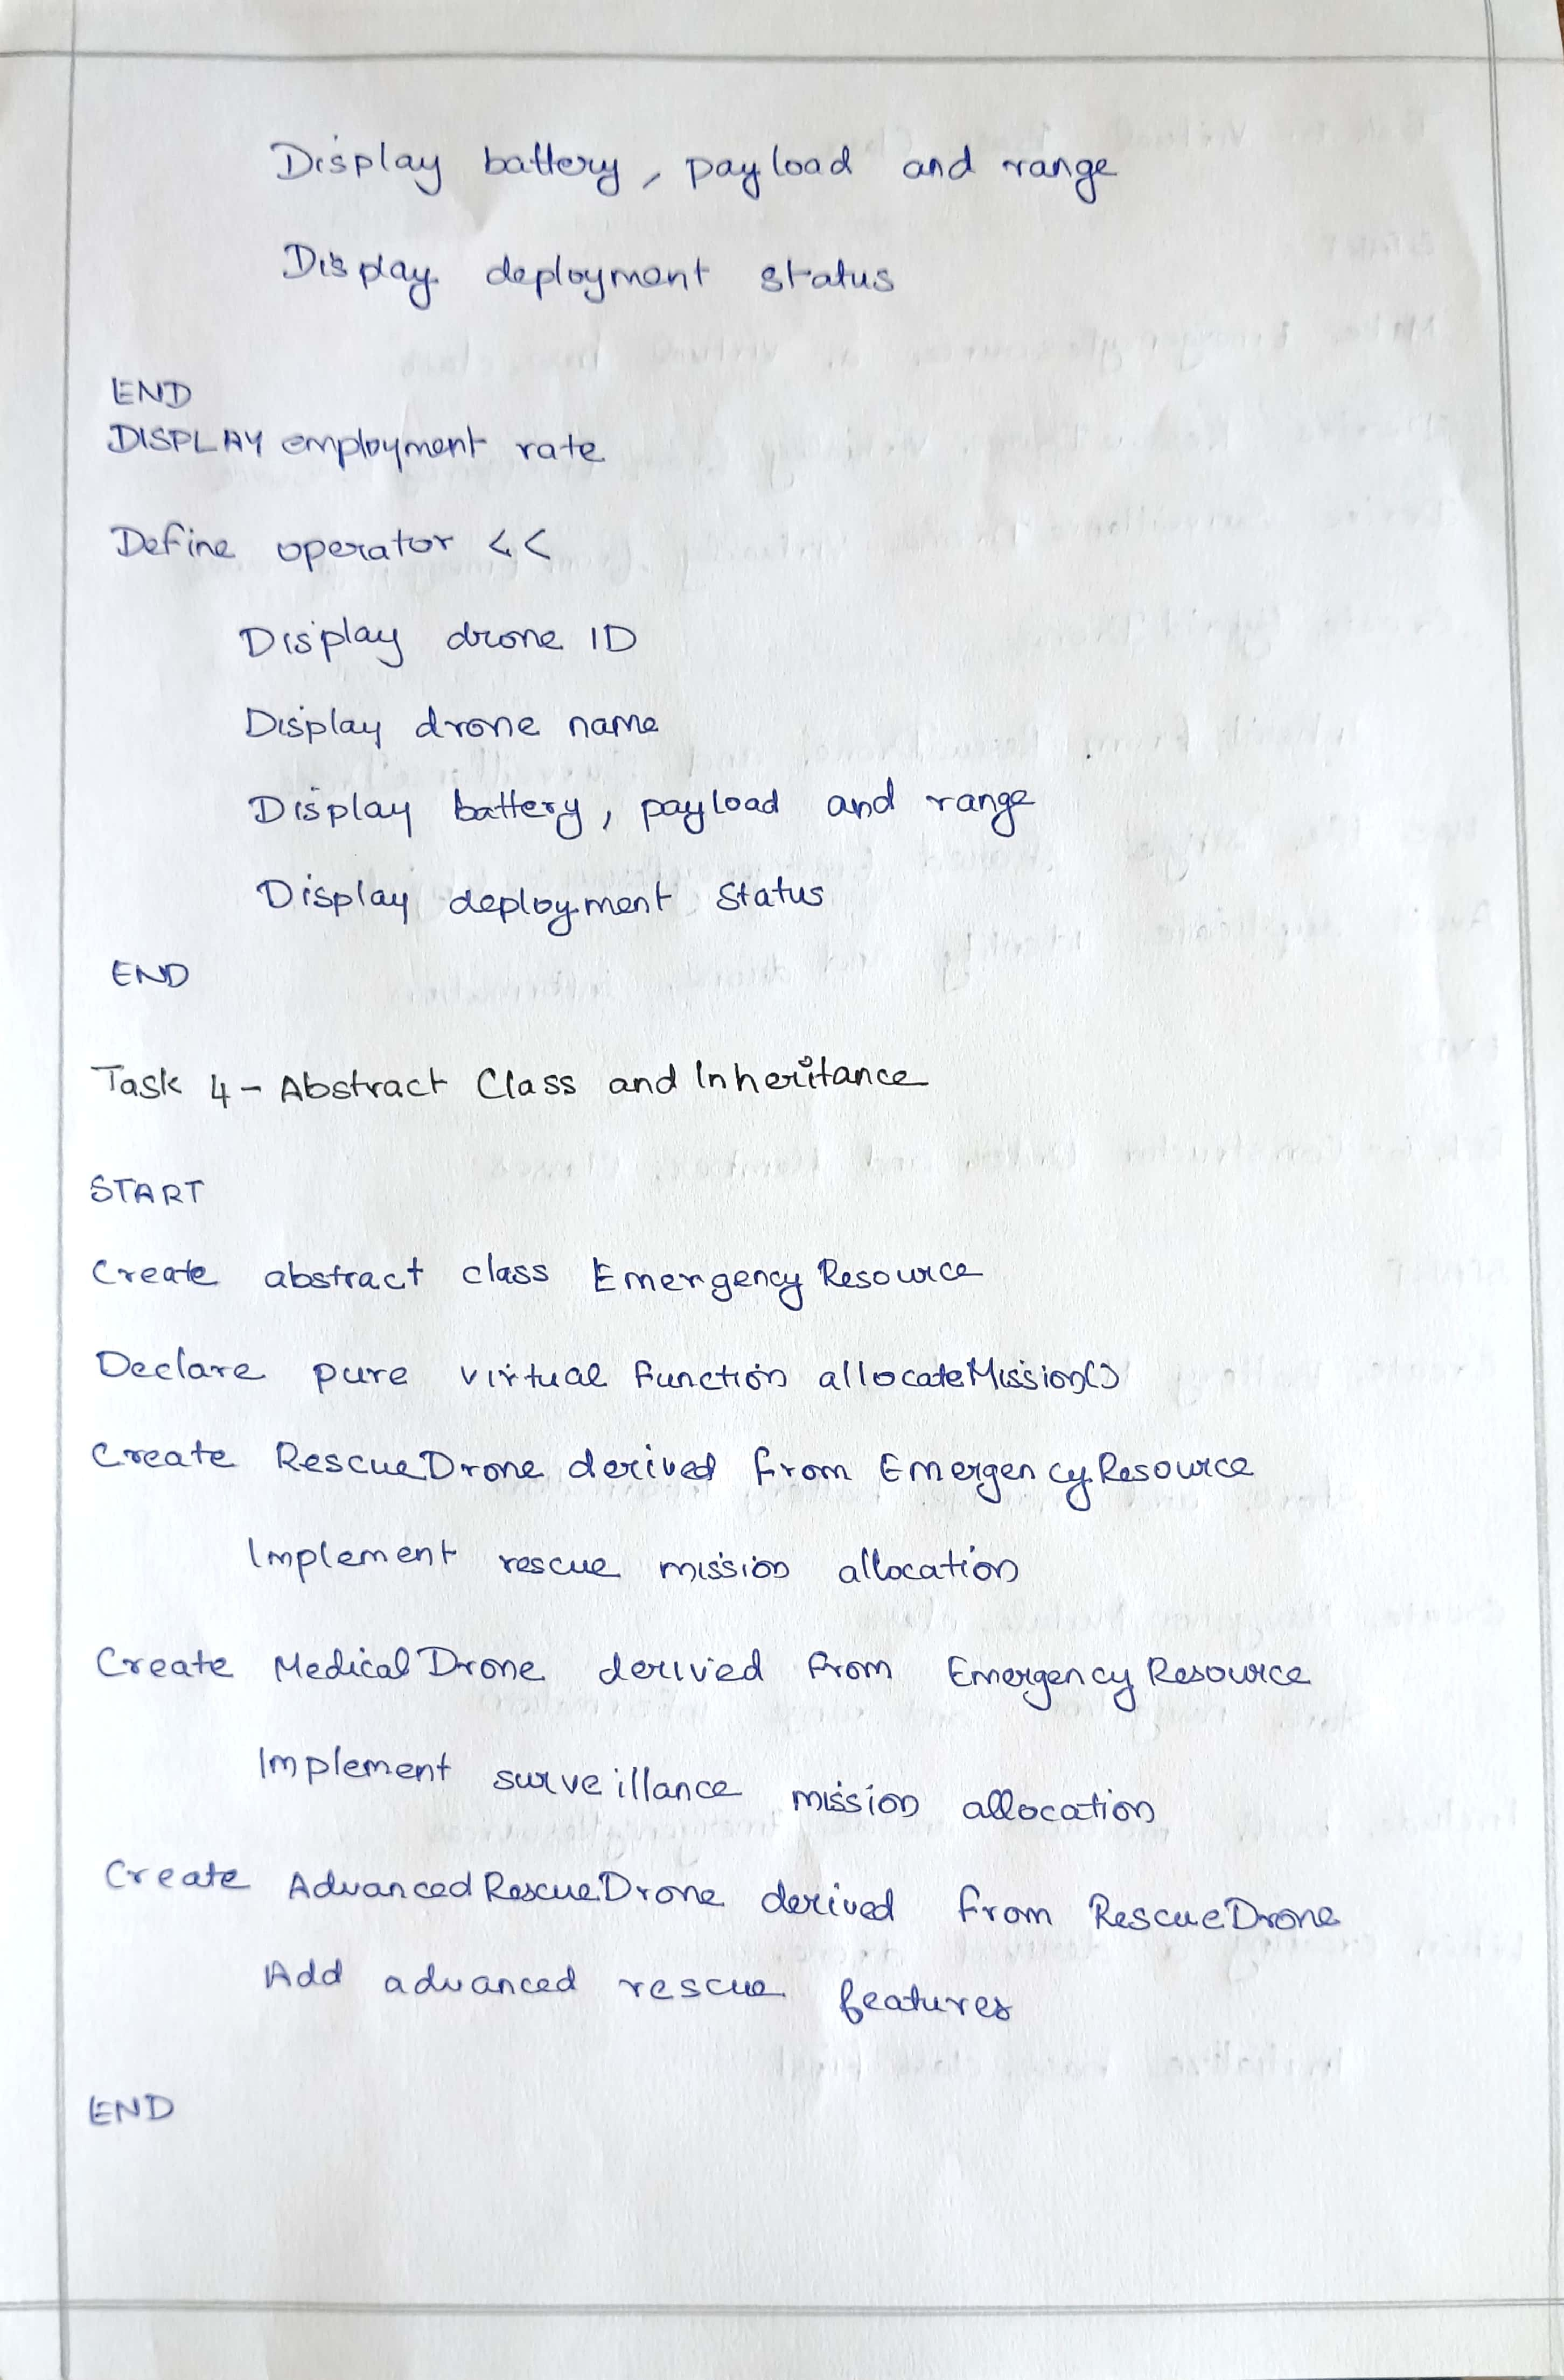 Display battery, payload and range
Display deployment status
END
DISPLAY employment rate
Define operator <<
Display drone ID
Display drone name
Display battery, payload and range
Display deployment status
END
Task 4 - Abstract Class and Inheritance
START
Create abstract class EmergencyResource
Declare pure virtual function allocateMission()
Create RescueDrone derived from EmergencyResource
Implement rescue mission allocation
Create MedicalDrone derived from EmergencyResource
Implement surveillance mission allocation
Create AdvancedRescueDrone derived from RescueDrone
Add advanced rescue features
END